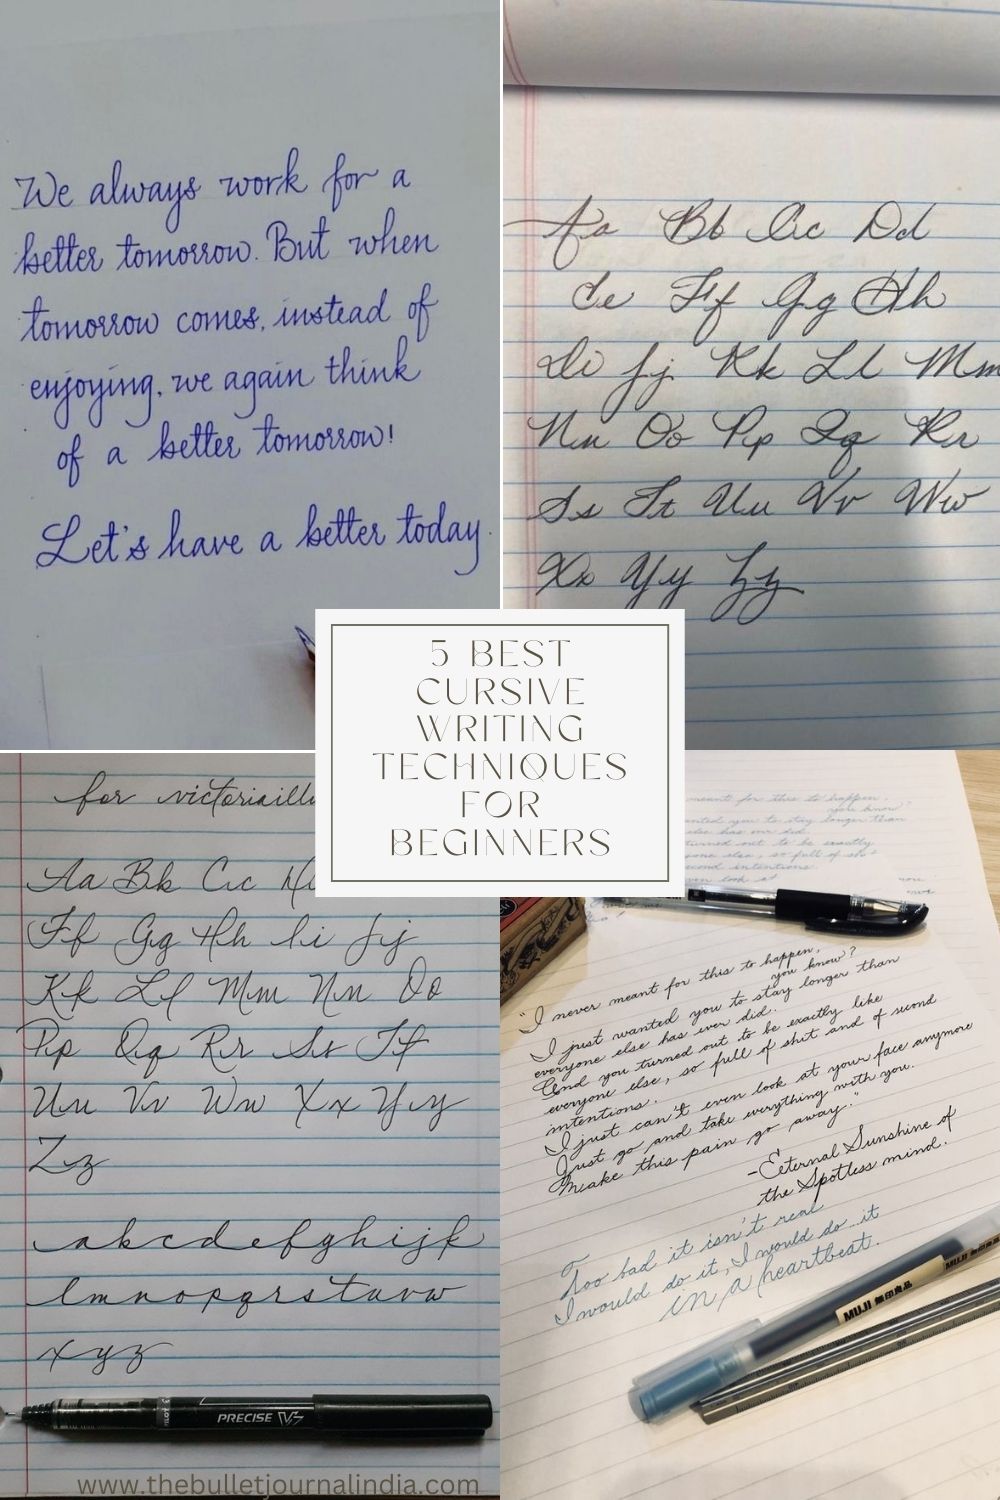 We always work for a
better tomorrow. But when
tomorrow comes, instead of
enjoying, we again think
of a better tomorrow!
Let's have a better today.
Aa Bb Cc Dd
Ee Ff Gg Hh
Ii Jj Kk Ll Mm
Nn Oo Pp Qq Rr
Ss Tt Uu Vv Ww
Xx Yy Zz
5 BEST
CURSIVE
WRITING
TECHNIQUES
FOR
BEGINNERS
for
Aa Bb Cc
Ff Gg Hh Ii Jj
Kk Ll Mm Nn Oo
Pp Qq Rr Ss Tt
Uu Vv Ww Xx Yy
Zz
a b c d e f g h i j k
l m n o p q r s t u v w
x y z
PRECISE V7
www.thebulletjournalindia.com
meant for this to happen,
you know?
wanted you to stay longer than
else has ever did.
turned out to be exactly
else, so full of
intentions.
even look at
"I never meant for this to happen,
you know?
I just wanted you to stay longer than
everyone else has ever did.
And you turned out to be exactly like
everyone else, so full of shit and of second
intentions.
I just can't even look at your face anymore
Just go and take everything with you.
Make this pain go away."
-Eternal Sunshine of
the Spotless mind.
Too bad it isn't real
I would do it, I would do it
in a heartbeat.
MUJI 無印良品
MUJI